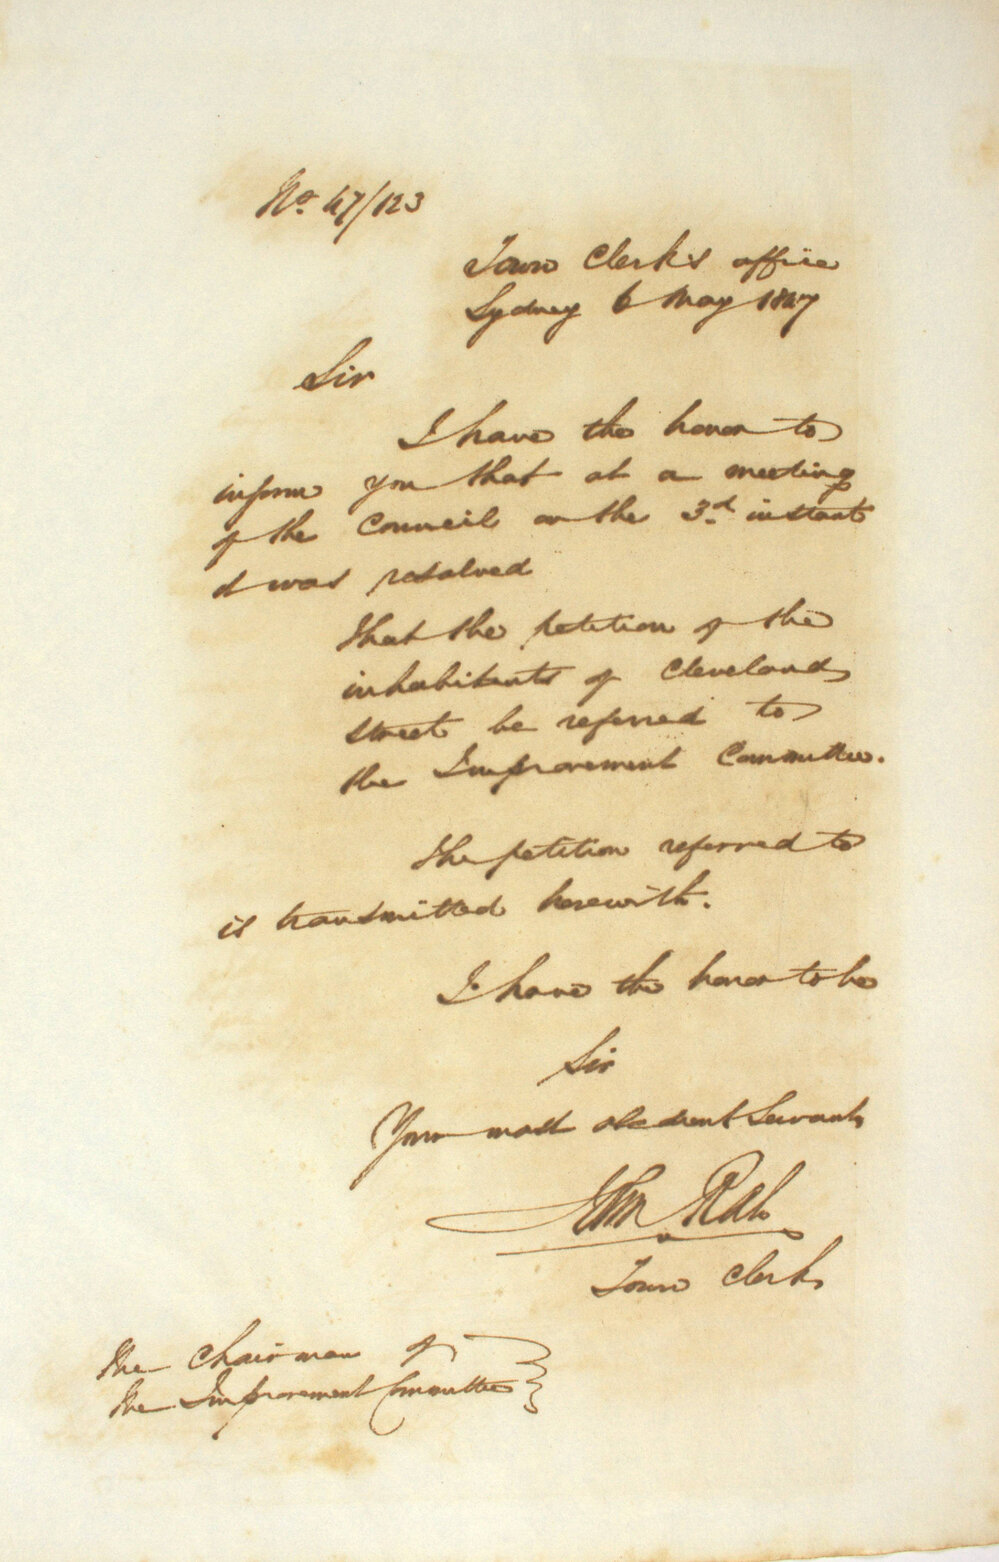 No. 47/123
Town Clerk's office
Sydney 6 May 1847
Sir
I have the honor to
inform you that at a meeting
of the Council on the 3d. instant
it was resolved
That the petition of the
inhabitants of Cleveland
Street be referred to
the Improvement Committee.
The petition referred to
is transmitted herewith.
I have the honor to be
Sir
Your most obedient Servant
John Rae
Town Clerk
The Chairman of
the Improvement Committee